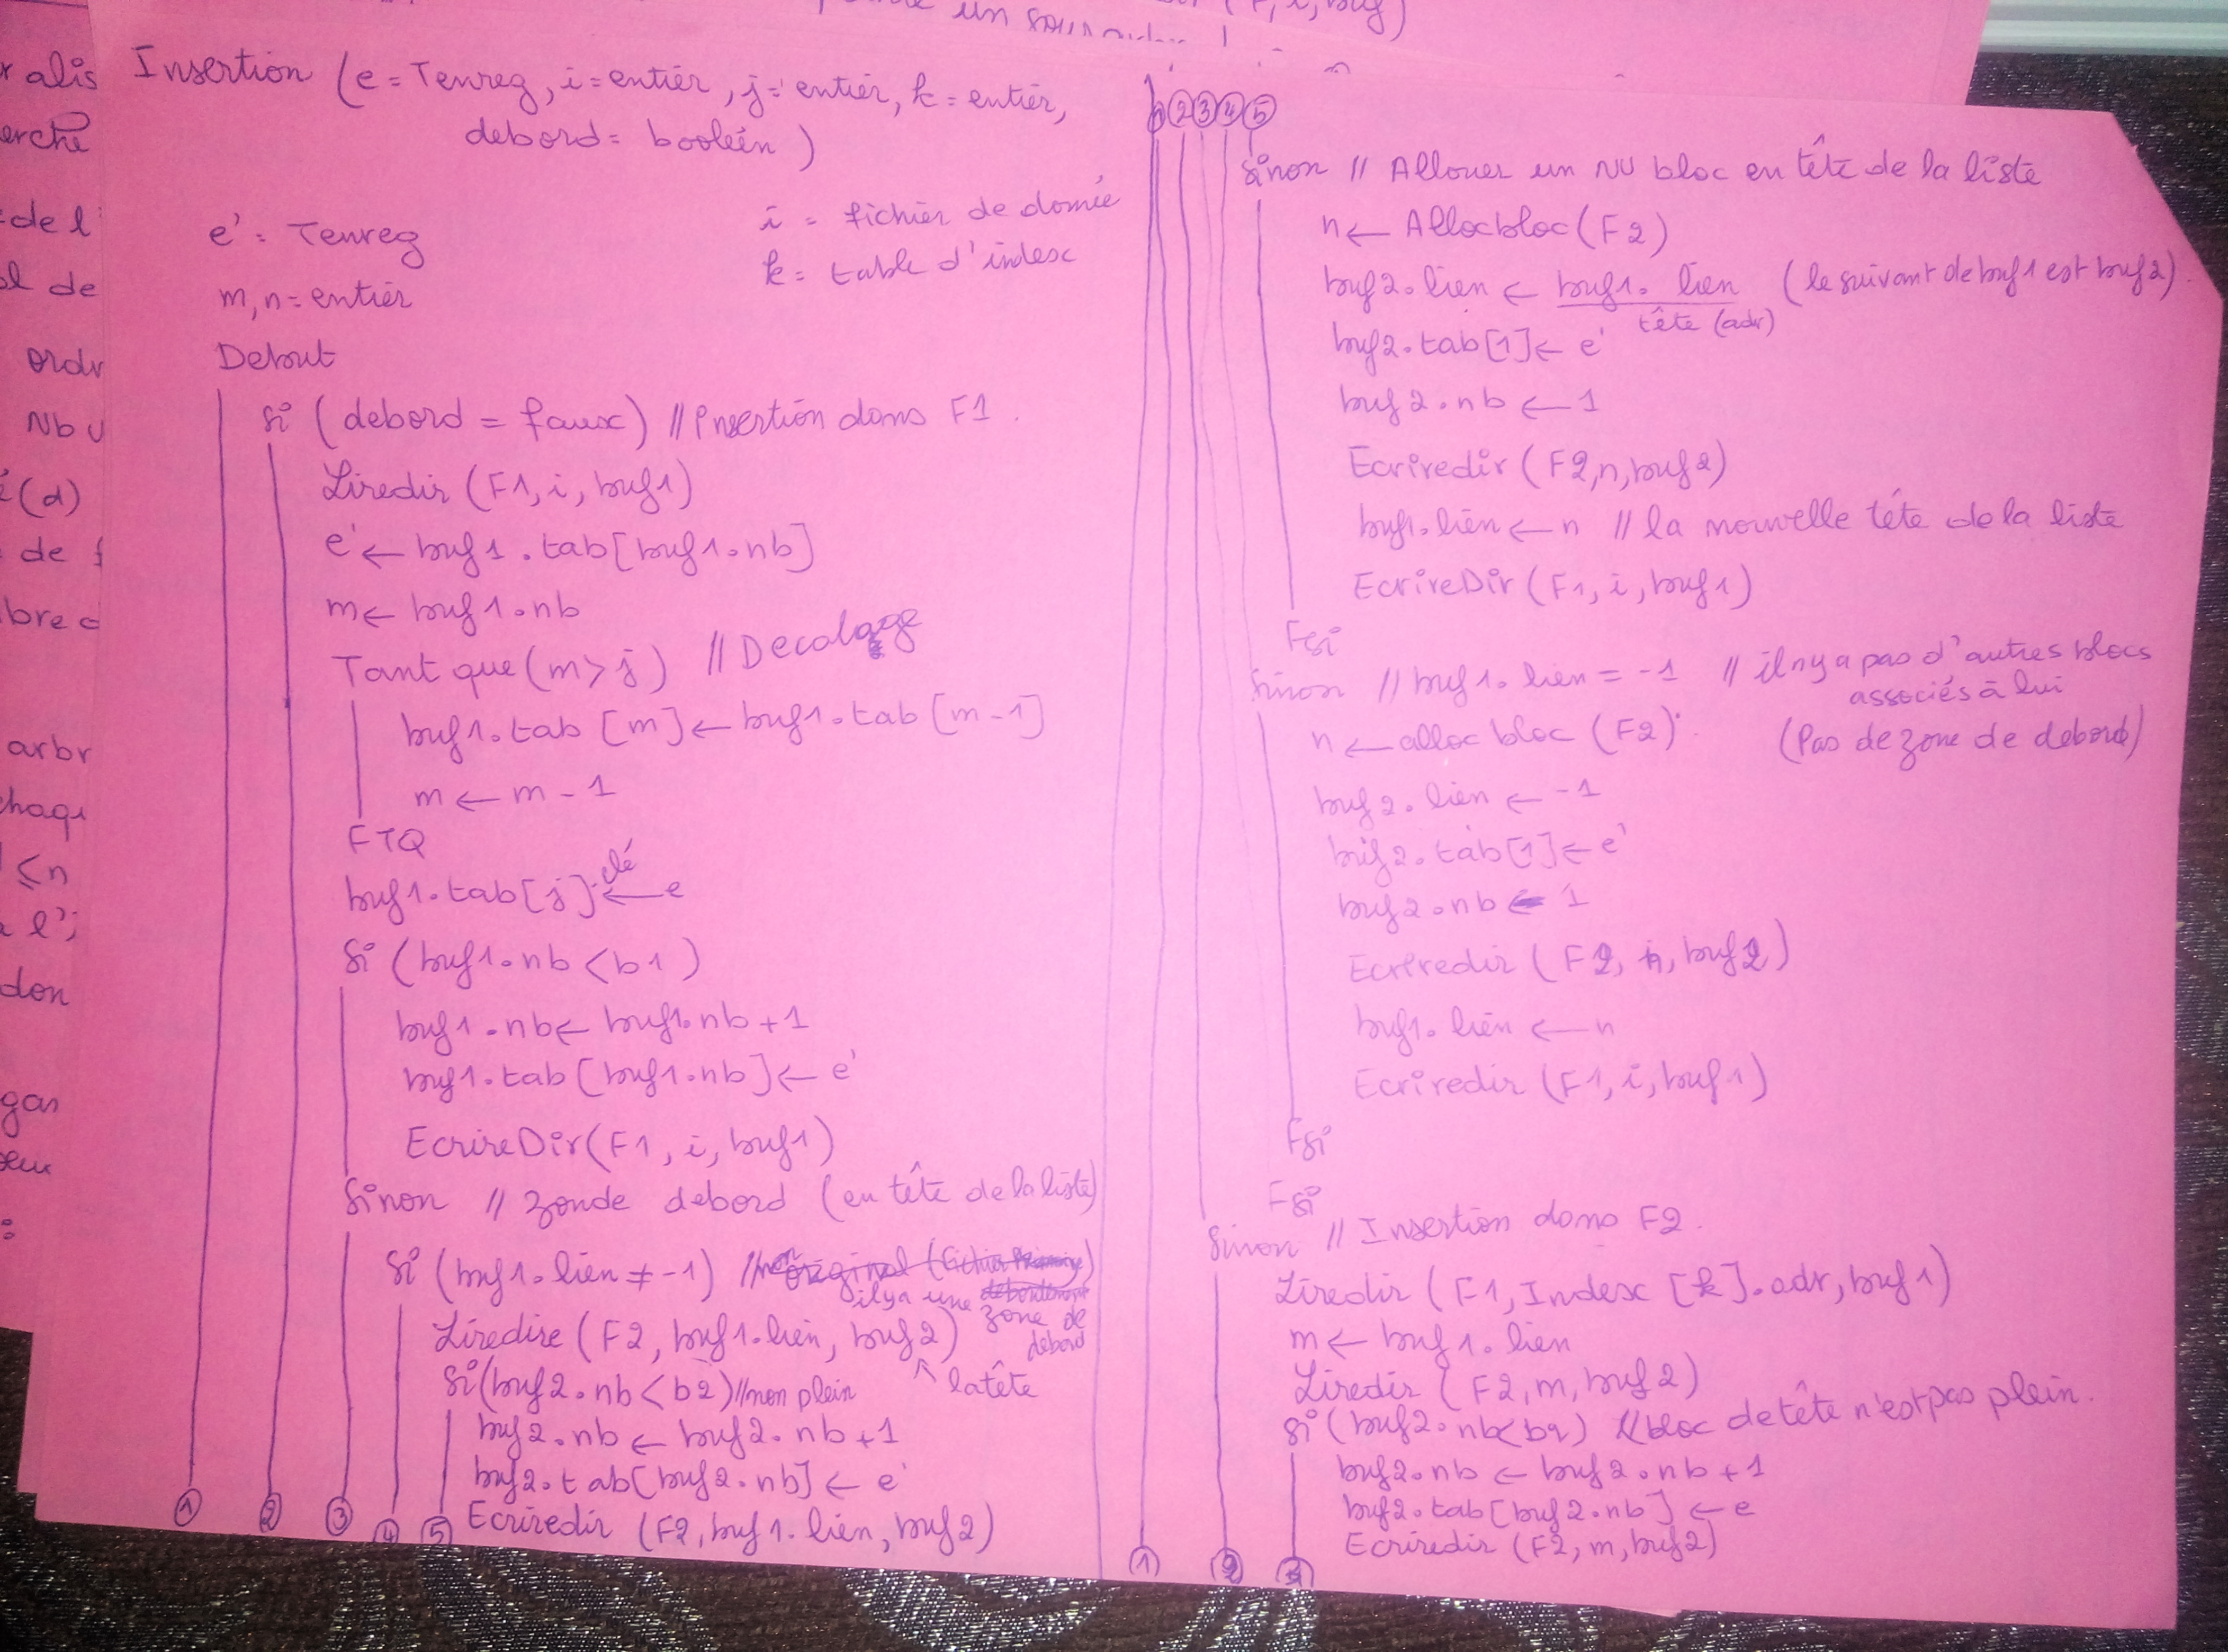 un
(F, i, buf)
alis
erche
de l'
de
ordr
Nb
(d)
de
bre
arbr
haqu
≤n
l'
don
gan
:
Insertion (e = Tenreg, i = entier, j = entier, k = entier,
debord = booléen)
e' = Tenreg
i = fichier de donnée
m,n = entier
k = table d'index
Debut
Si (debord = faux) // Insertion dans F1.
Liredir (F1, i, buf1)
e' ← buf1.tab[buf1.nb]
m ← buf1.nb
Tant que (m > j) // Decalage
buf1.tab [m] ← buf1.tab [m-1]
m ← m - 1
FTQ
buf1.tab[j].clé ← e
Si (buf1.nb < b1)
buf1.nb ← buf1.nb + 1
buf1.tab [buf1.nb] ← e'
EcrireDir (F1, i, buf1)
Sinon // zonde debord (en tête de la liste)
Si (buf1.lien ≠ -1) // non original (fichier
il ya une zone de debord
Liredire (F2, buf1.lien, buf2)
↖ la tête
Si (buf2.nb < b2) // non plein
buf2.nb ← buf2.nb + 1
buf2.tab[buf2.nb] ← e'
Ecriredir (F2, buf1.lien, buf2)
① ② ③ ④ ⑤
① ② ③ ④ ⑤
Sinon // Allouer un NV bloc en tête de la liste
n ← Allocbloc (F2)
buf2.lien ← buf1.lien (le suivant de buf1 est buf2).
tête (adr)
buf2.tab[1] ← e'
buf2.nb ← 1
Ecriredir (F2, n, buf2)
buf1.lien ← n // la nouvelle tête de la liste
EcrireDir (F1, i, buf1)
Fsi
Sinon // buf1.lien = -1 // il ny a pas d'autres blocs
associés à lui
n ← alloc bloc (F2)
(Pas de zone de debord)
buf2.lien ← -1
buf2.tab[1] ← e'
buf2.nb ← 1
Ecriredir (F2, n, buf2)
buf1.lien ← n
Ecriredir (F1, i, buf1)
Fsi
Fsi
Sinon // Insertion dans F2.
Liredir (F1, Index [k].adr, buf1)
m ← buf1.lien
Liredir (F2, m, buf2)
Si (buf2.nb < b2) // bloc de tête n'est pas plein.
buf2.nb ← buf2.nb + 1
buf2.tab[buf2.nb] ← e
Ecriredir (F2, m, buf2)
① ② ③